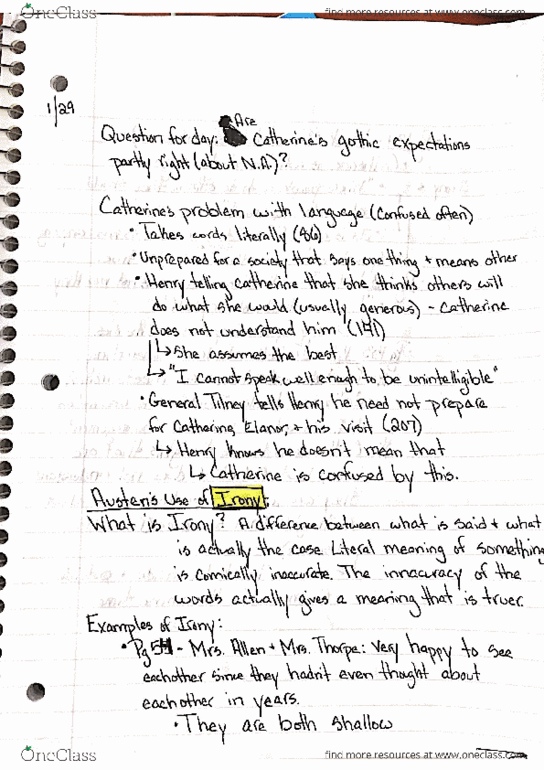 OneClass
find more resources at www.oneclass.com
1/29
Are
Question for day: Catherine's gothic expectations
partly right (about N.A)?
Catherine's problem with language (Confused often)
• Takes words literally (86)
• Unprepared for a society that says one thing + means other
• Henry telling Catherine that she thinks others will
do what she would (usually generous) - Catherine
does not understand him (141)
↳ She assumes the best
↳ "I cannot speak well enough to be unintelligible"
• General Tilney tells Henry he need not prepare
for Catherine, Elanor, + his visit (207)
↳ Henry knows he doesn't mean that
↳ Catherine is confused by this.
Austen's Use of Irony:
What is Irony? A difference between what is said + what
is actually the case Literal meaning of something
is comically inaccurate. The innacuracy of the
words actually gives a meaning that is truer.
Examples of Irony:
• Pg - Mrs. Allen + Mrs. Thorpe: Very happy to see
eachother since they hadn't even thought about
each other in years.
• They are both shallow
OneClass
find more resources at www.oneclass.com